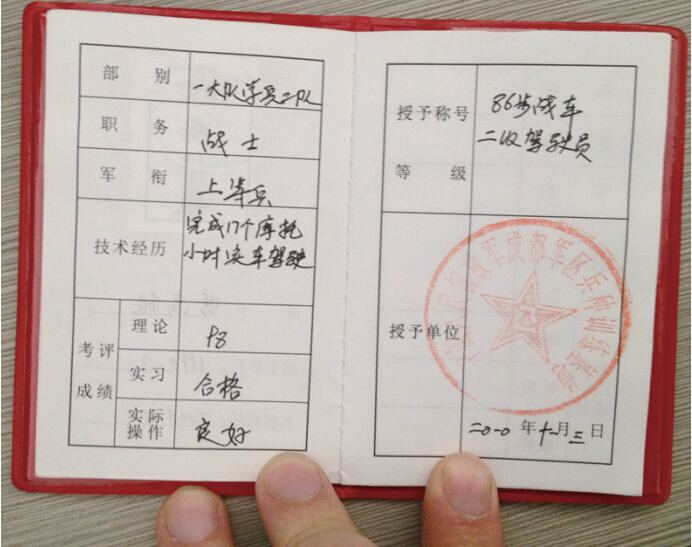 部 别
一大队学兵二队
职 务
战士
军 衔
上等兵
技术经历
完成17个摩托
小时实车驾驶
考评
成绩
理论
98
实习
合格
实际
操作
良好
授予称号
等 级
86步战车
二级驾驶员
授予单位
放军成都军区兵种训练基地
二〇一〇年十一月三日